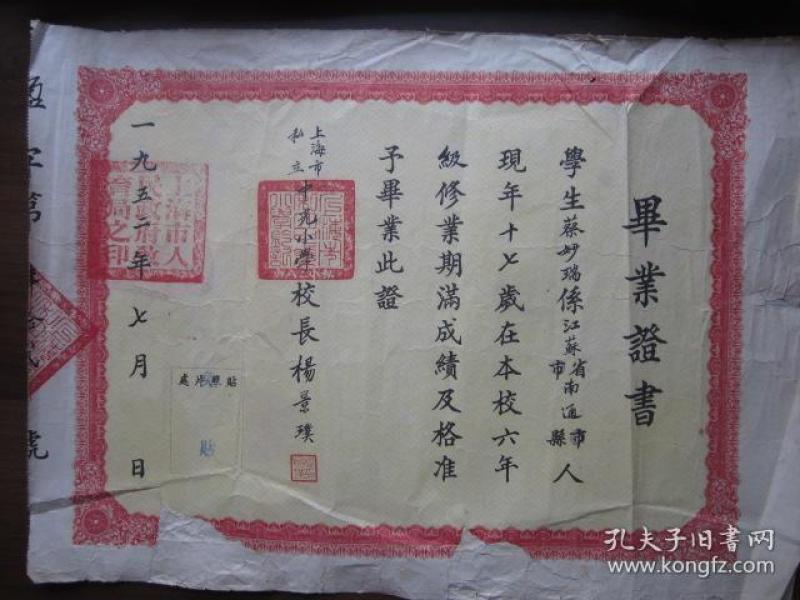 畢業證書
學生蔡妙瑞係江蘇省南通市
市縣人
現年十七歲在本校六年
級修業期滿成績及格准
予畢業此證
上海市
私立
中光小學校長楊景璞
貼照片處
貼
一九五二年七月 日
上海市人民政府教育局之印
號
孔夫子旧书网
www.kongfz.com